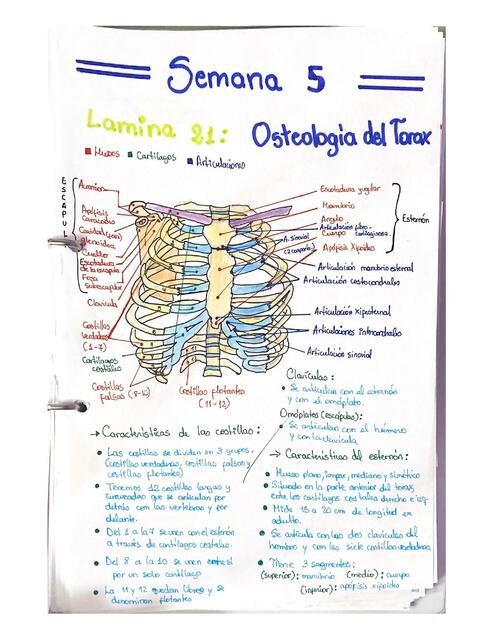 Semana 5
Lamina 21: Osteologia del Torax
Huesos Cartilagos Articulaciones
ESCAPUL
Acromion
Apófisis
Coracoides
Cavidad
glenoidea
Cuello
Escotadura
de la escapula
Fosa
Subescapular
Clavícula
Costillas
Verdaderas
(1-7)
Cartílagos
costales
Costillas
falsas (8-12)
Costillas flotantes
(11-12)
Escotadura yugular
Manubrio
Angulo
Articulación fibro-
Cuerpo cartilaginosa
A. sinovial
Apófisis Xipoides
Esternón
Articulación manubrio esternal
Articulación costocondrales
Articulación xiposternal
Articulaciones intercondrales
Articulación sinovial
→ Características de las costillas:
Las costillas se dividen en 3 grupos.
(costillas verdaderas, costillas falsas y
costillas flotantes)
Tenemos 12 costillas largas y
curveadas que se articulan por
detrás con las vertebras y por
delante.
Del 1 a la 7 se unen con el esternón
a través de cartílagos costales.
Del 8 a la 10 se unen entre si
por un solo cartílago
La 11 y 12 quedan libres y se
denominan flotantes
Clavículas:
Se articulan con el esternón
y con el omóplato.
Omóplatos (escápulas):
Se articulan con el húmero
y con la clavícula
→ Características del esternón:
Hueso plano, impar, mediano y simétrico
Situado en la parte anterior del torax,
entre los cartílagos costales derecho e izq.
Mide 15 a 20 cm de longitud en
adulto.
Se articula con dos clavículas del
hombro y con las siete costillas verdaderas.
Tiene 3 segmentos:
(superior): manubrio (medio): cuerpo
(inferior): apófisis xipoides